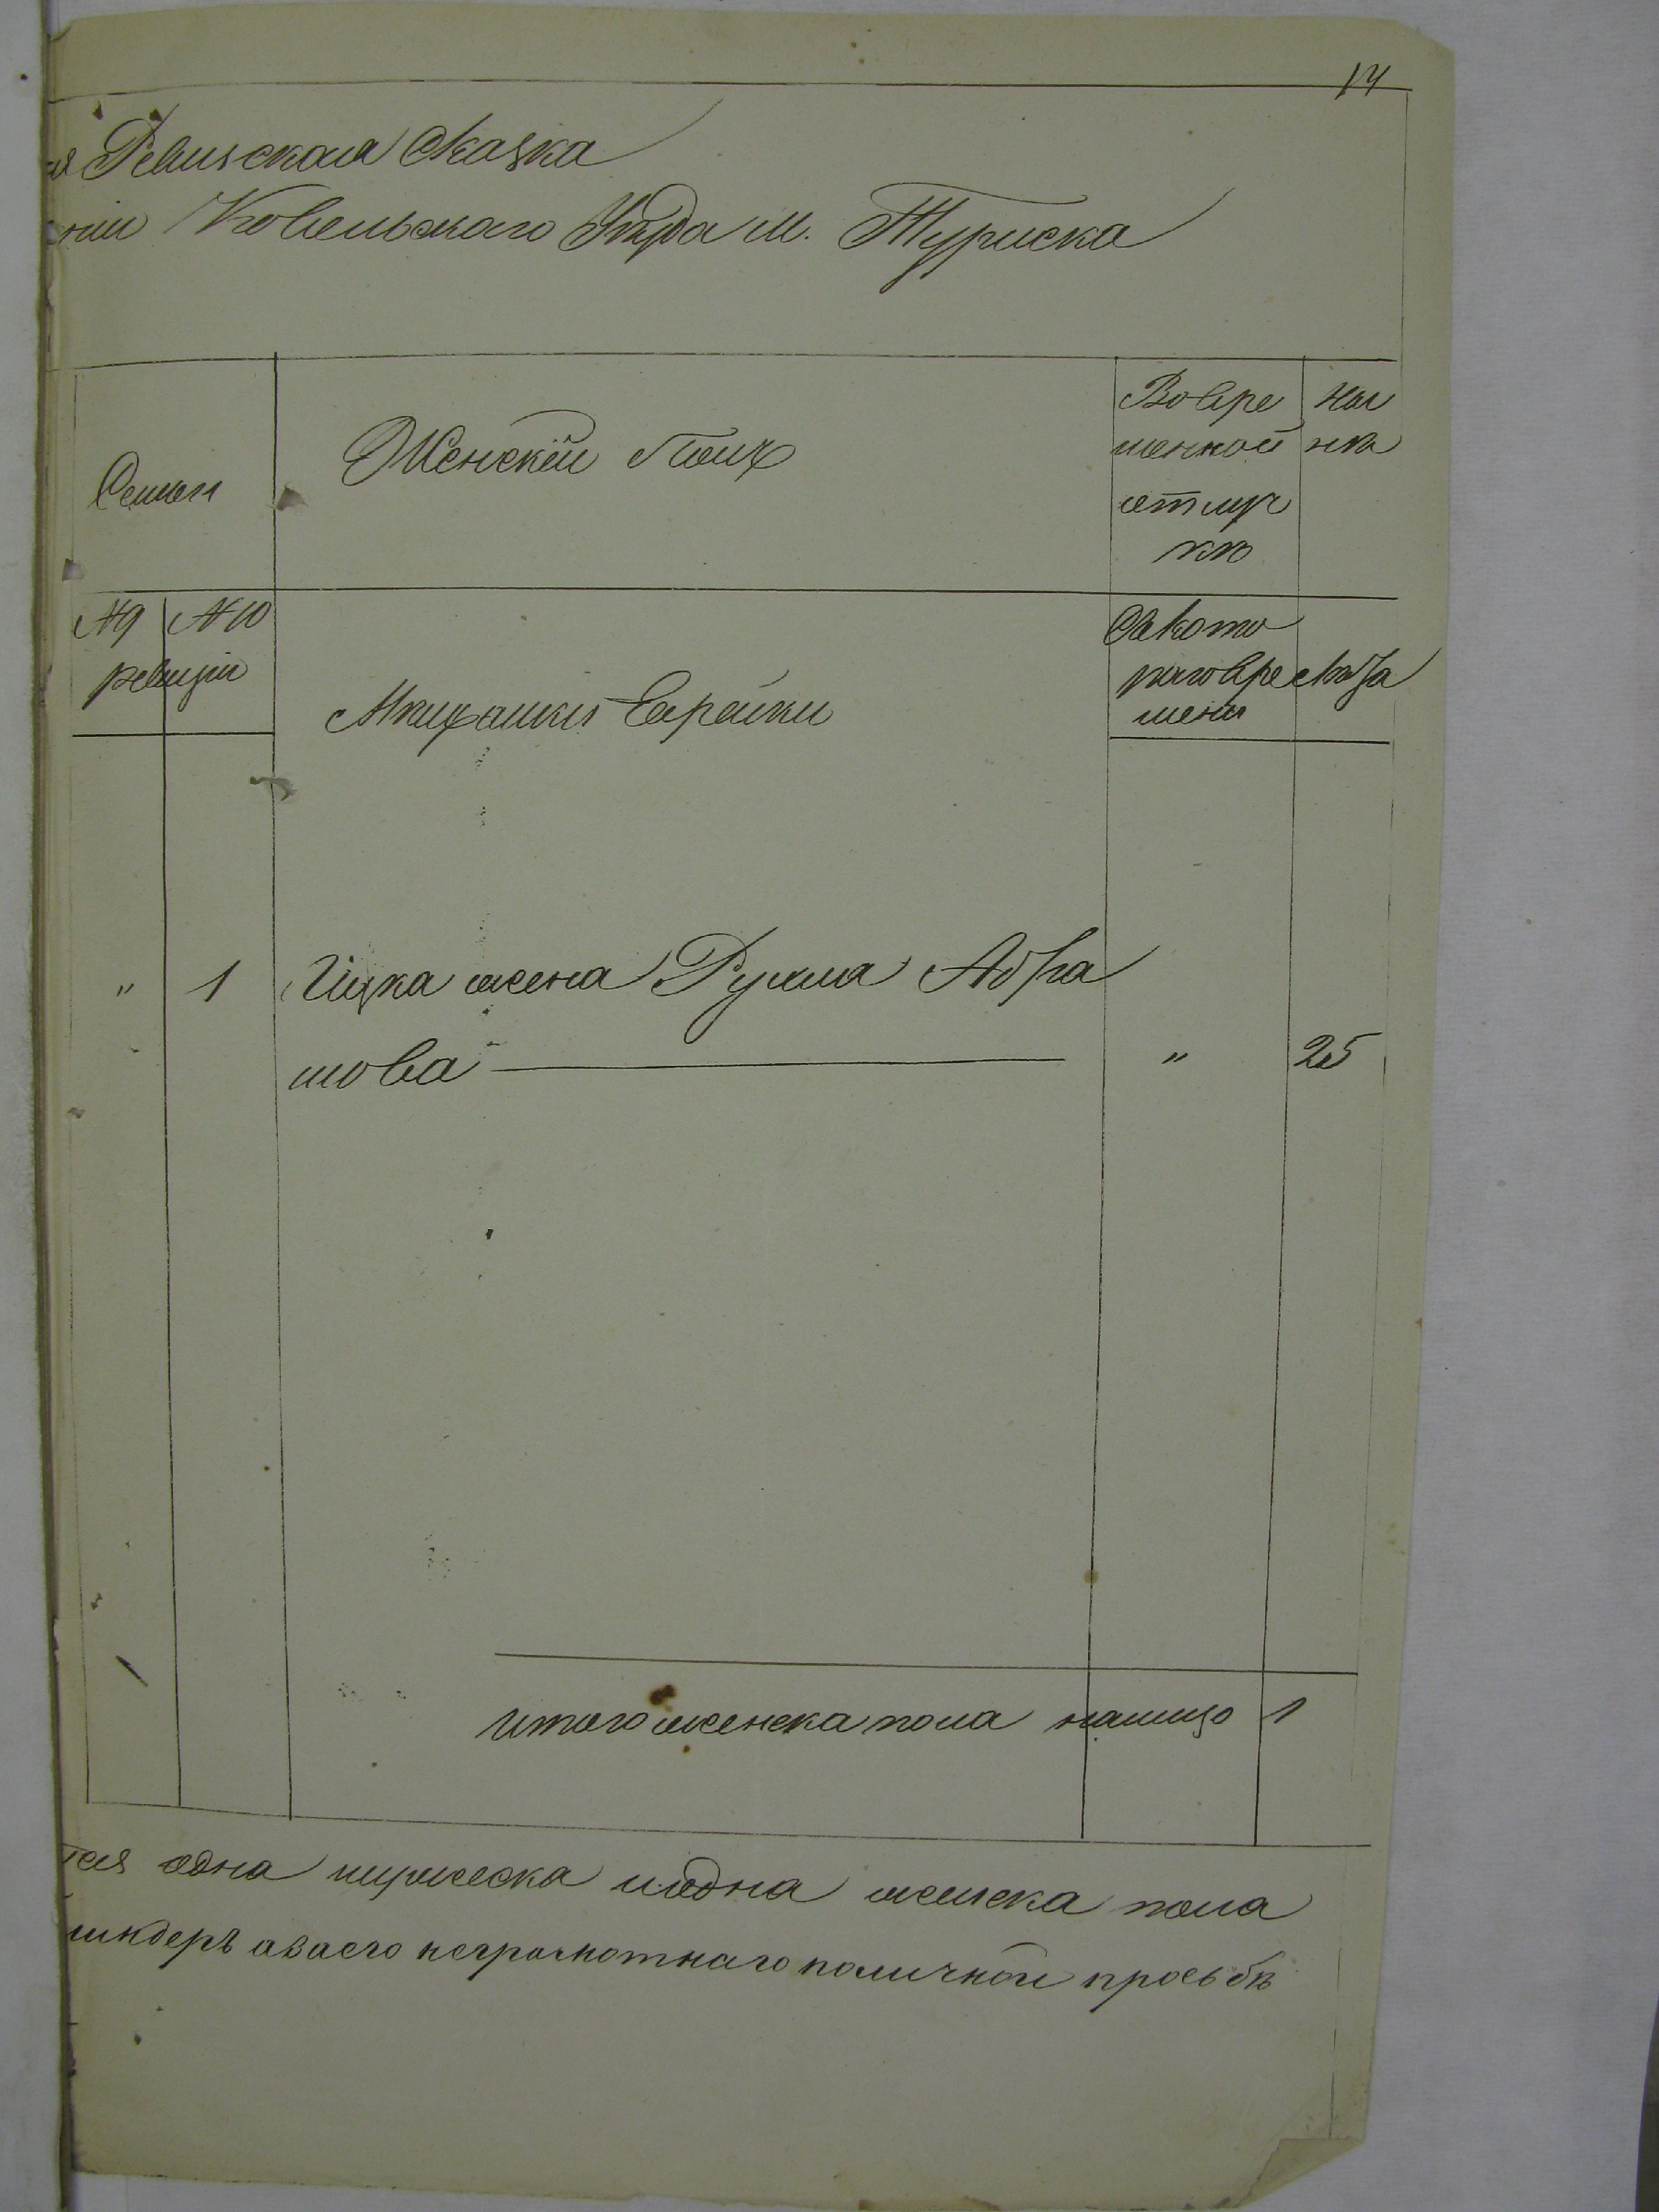 14
я Ревизская Сказка
нии Ковельскаго Уѣзда м. Туриска
Семьи
Женскiй Полъ
Во вре
менной
отлуч
кѣ
На
№ 9 № 10
ревизiи
Мещанки Еврейки
Съ кото
раго вре
мени
Лѣта
" 1 Ицка жена Рухля Абра
мова " 25
Итого женска пола налицо 1
тся одна мужеска и одна женска пола
шндеръ а за его неграмотнаго по личной просьбѣ